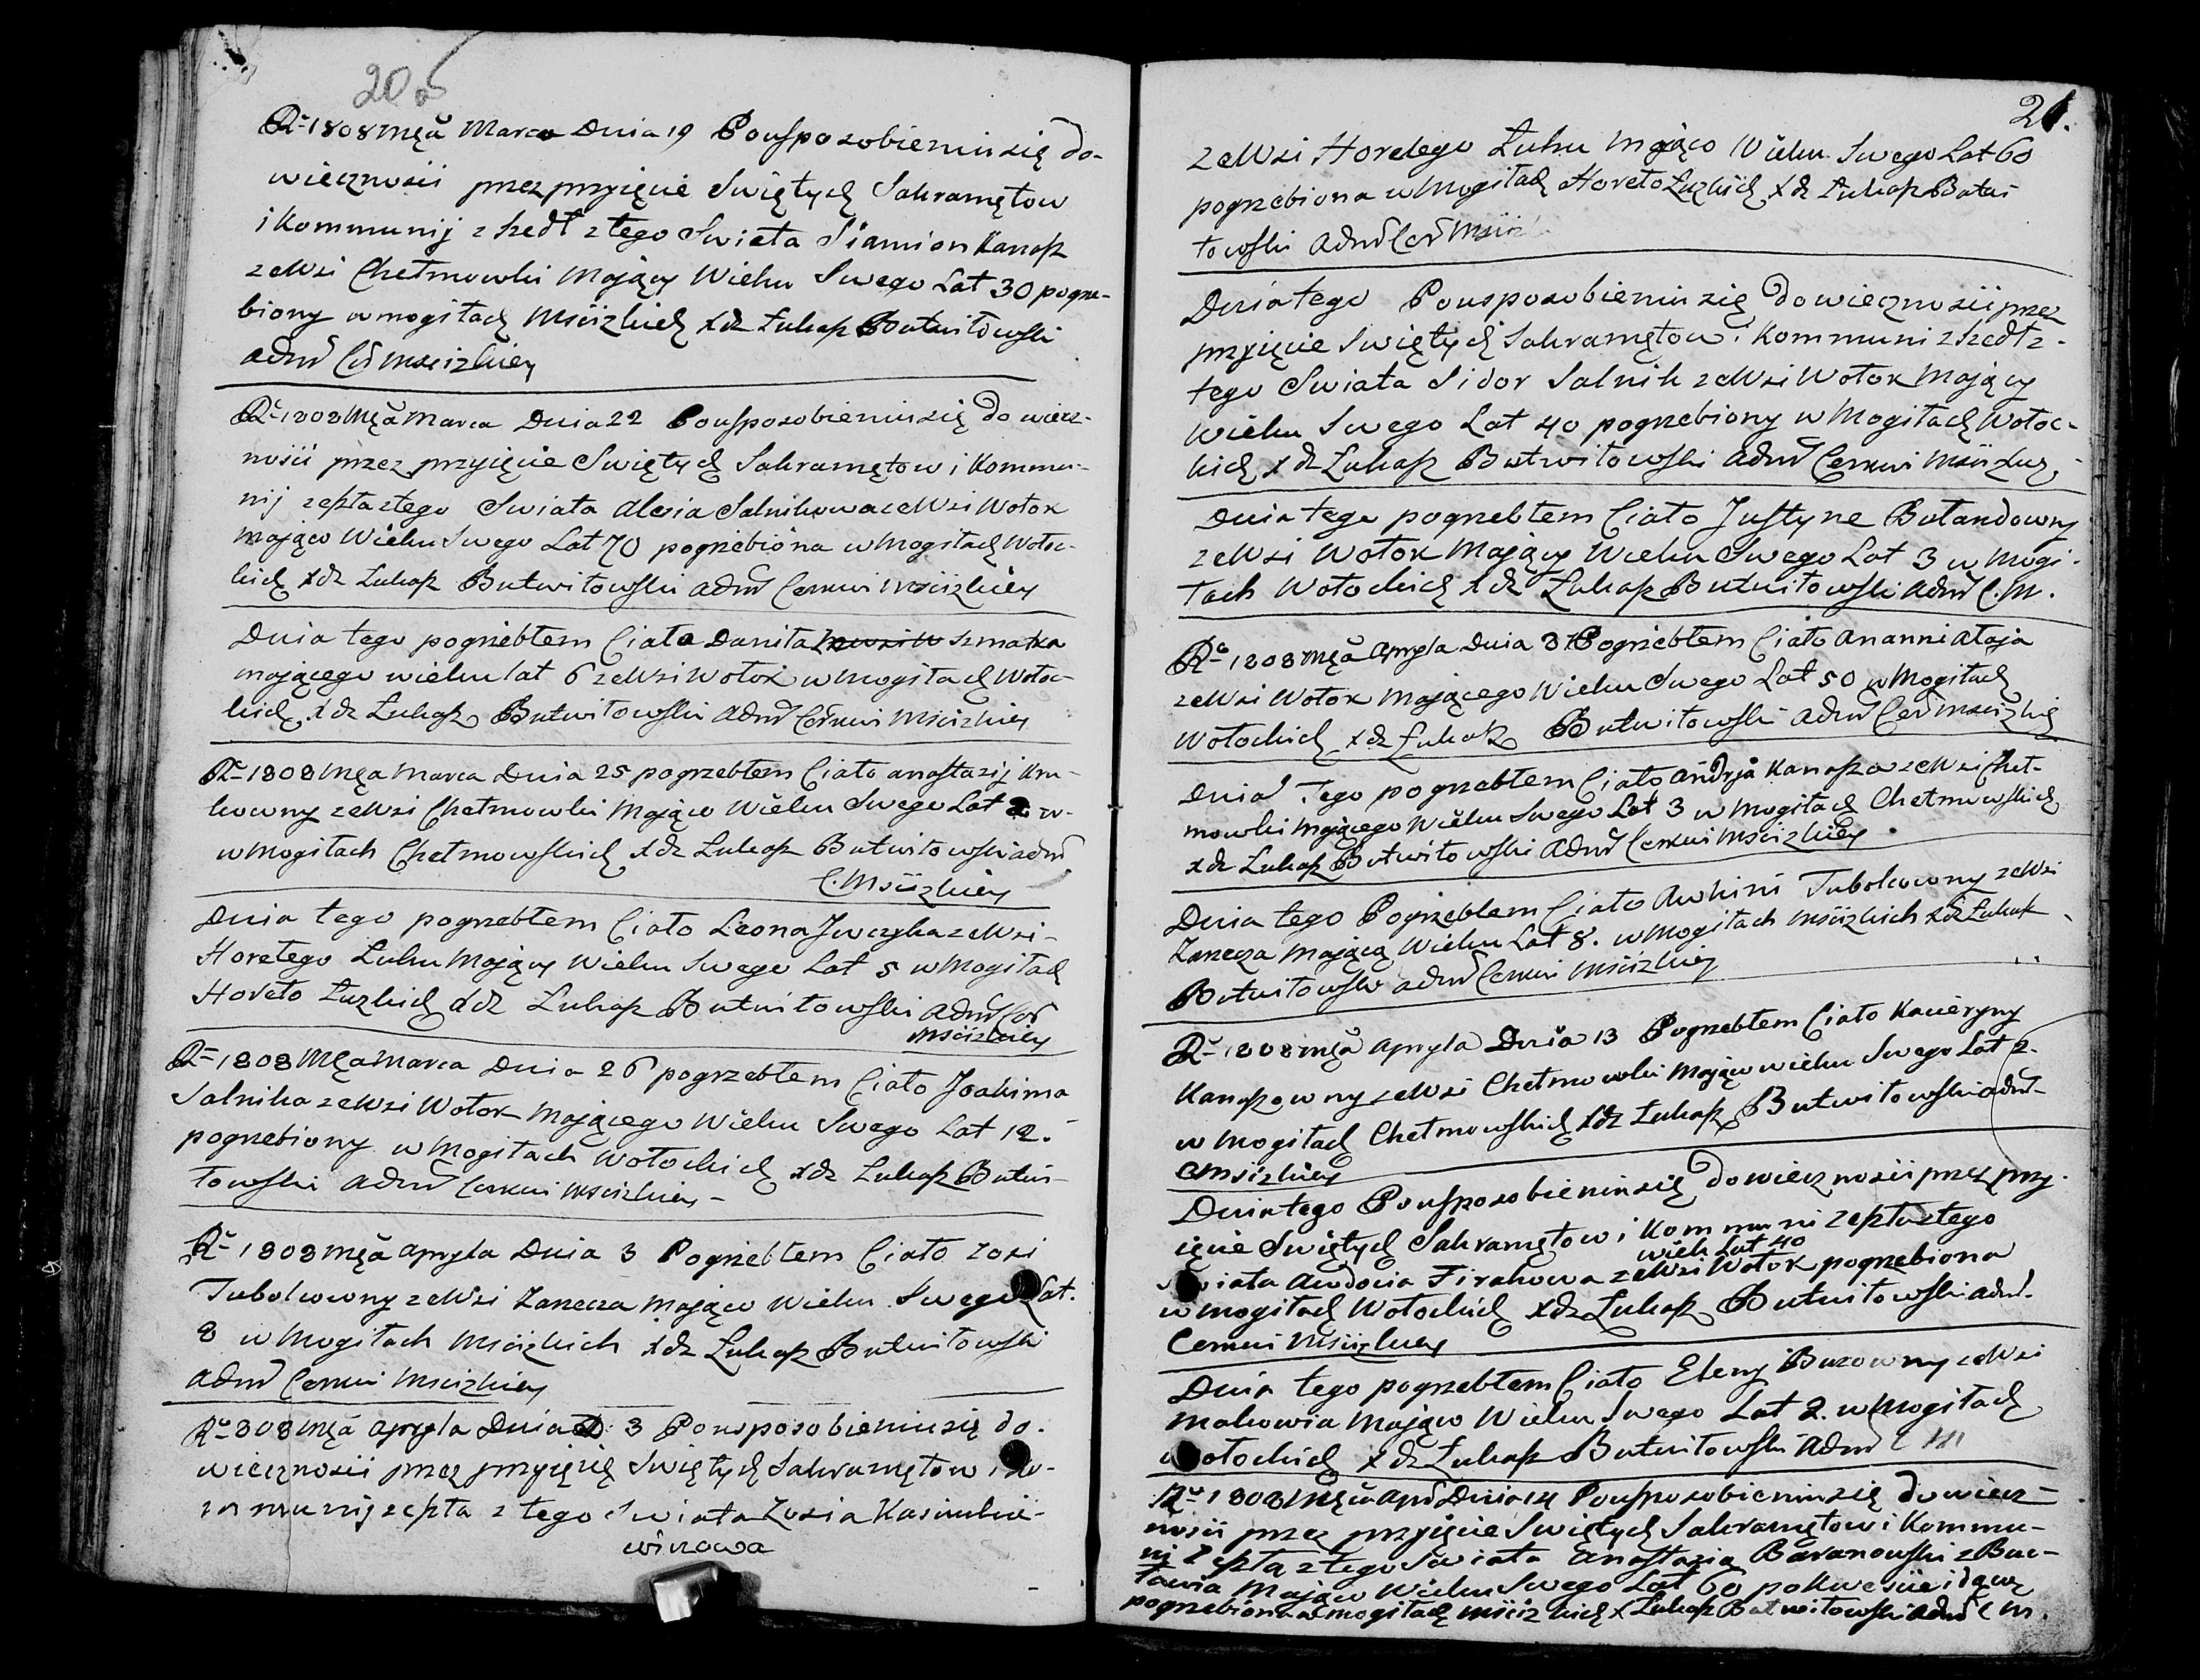 20
R. 1808 Mca Marca Dnia 19 Pousposobieniu się do-
wieczności przez przyięcie Swiętych Sakramętow
i Kommunij zszedł z tego Swiata Siamion Kanasz
ze Wsi Chełmowki Maiący Wieku Swego Lat 30 pogrze-
biony w mogiłach Mściżkich Xdz Łukasz Butwiłowski
Adm Cer Msciżkiey
R. 1808 Mca Marca Dnia 22 Pousposobieniu się do wiecz-
ności przez przyięcie Swiętych Sakramętow i Kommu-
nij zeszła z tego Swiata Alesia Salnikowa ze Wsi Wołok
maiąco Wieku Swego Lat 70 pogrzebiona w Mogiłach Wołoc-
kich Xdz Łukasz Butwiłowski Adm Cerkwi Mściżkiey
Dnia tego pogrzebłem Ciało Daniła Szmatka
mającego wieku lat 6 ze Wsi Wołok w Mogiłach Wołoc-
kich Xdz Łukasz Butwiłowski Adm Cerkwi Mściżkiey
R. 1808 Mca Marca Dnia 25 pogrzebłem Ciało Anastazij Kru-
kowny ze Wsi Chełmowki Maiąco Wieku Swego Lat 2 w-
w Mogiłach Chełmowskich Xdz Łukasz Butwiłowski Adm
C. Mściżkiey
Dnia tego pogrzebłem Ciało Leona Jwczyka ze Wsi-
Horełego Łuhu Mający Wieku Swego Lat 5 w Mogiłach
Horeło Łuzkich Xdz Łukasz Butwiłowski Adm Cer
Mściżkiey
R. 1808 Mca Marca Dnia 26 pogrzebłem Ciało Joakima
Salnika ze Wsi Wołok Mającego Wieku Swego Lat 12.
pogrzebiony w Mogiłach Wołockich Xdz Łukasz Butwi-
łowski Adm Cerkwi Msciżkiey-
R. 1808 Mca Apryla Dnia 3 Pogrzebłem Ciało Zosi
Tubolcowny ze Wsi Zarzecza Maiąco Wieku Swego Lat.
8 w Mogiłach Mściżkich Xdz Łukasz Butwiłowski
Adm Cerkwi Msciżkiey
R. 808 Mca Apryla Dnia 3 Pousposobieniu się do.
wieczności przez przyięcię Swiętych Sakramętow i Ko-
mmunij zeszła z tego Swiata Zosia Kasiukie-
wiczowa
21.
ze Wsi Horełego Łuhu Mając Wieku Swego Lat 60
pogrzebiona w Mogiłach Horeło Łuzkich Xdz Łukasz Butwi-
łowski Adm Cer Mściz
Dnia tego Pousposobieniu się do wieczności przez
przyięcie Swiętych Sakramętow i Kommuni zszedł z-
tego Swiata Sidor Salnik ze Wsi Wołok Mający
Wieku Swego Lat 40 pogrzebiony w Mogiłach Wołoc-
kich Xdz Łukasz Butwiłowski Adm Cerkwi
Dnia tego pogrzebłem Ciało Justyne Butandowny
ze Wsi Wołok Mający Wieku Swego Lat 3 w Mogi-
łach Wołockich Xdz Łukasz Butwiłowski Adm C. M.
R. 1808 Mca Apryla Dnia 3 Pogrzebłem Ciało Ananni
ze Wsi Wołok Mającego Wieku Swego Lat 50 w Mogiłach
Wołockich Xdz Łukasz Butwiłowski Adm Cer
Dnia Tego pogrzebłem Ciało Andrja Kanasza ze Wsi Cheł-
mowki Mającego Wieku Swego Lat 3 w Mogiłach Chełmowskich
Xdz Łukasz Butwiłowski Adm Cerkwi Msciżkiey.
Dnia tego Pogrzebłem Ciało Awkini Tubolcowny ze Wsi
Zarzecza Mającą Wieku Lat 8. w Mogiłach Mściżkich Xdz Łukasz
Butwiłowski Adm Cerkwi Mściżkiey
R. 1808 Mca Apryla Dnia 13 Pogrzebłem Ciało Kacieryny
Kanaszowny ze Wsi Chełmowki Maiąco wieku Swego Lat 2.
w Mogiłach Chełmowskich Xdz Łukasz Butwiłowski Adm
C Mściżkiey
Dnia tego Pousposobieniu się do wieczności przez przy-
ięcie Swiętych Sakramętow i Kommuni zeszła z tego
wiek Lat 40
Swiata Awdocia Firakowa ze Wsi Wołok pogrzebiona
w Mogiłach Wołockich Xdz Łukasz Butwiłowski Adm.
Cerkwi Mściżkiey
Dnia tego pogrzebłem Ciało Eleny Buzowny ze Wsi
Makowia Maiąco Wieku Swego Lat 2. w Mogiłach
Wołockich Xdz Łukasz Butwiłowski Adm C M
R. 1808 Mca Apr Dnia 14 Pousposobieniu się do wiecz-
ności przez przyięcie Swiętych Sakramętow i Kommu-
nij zeszła z tego Swiata Anastazia Baranowski z Buc-
ławia Maiąco Wieku Swego Lat 60 po Kweście idącą
pogrzebiona w mogiłach Mściżkich X Łukasz Butwiłowski Adm C M.